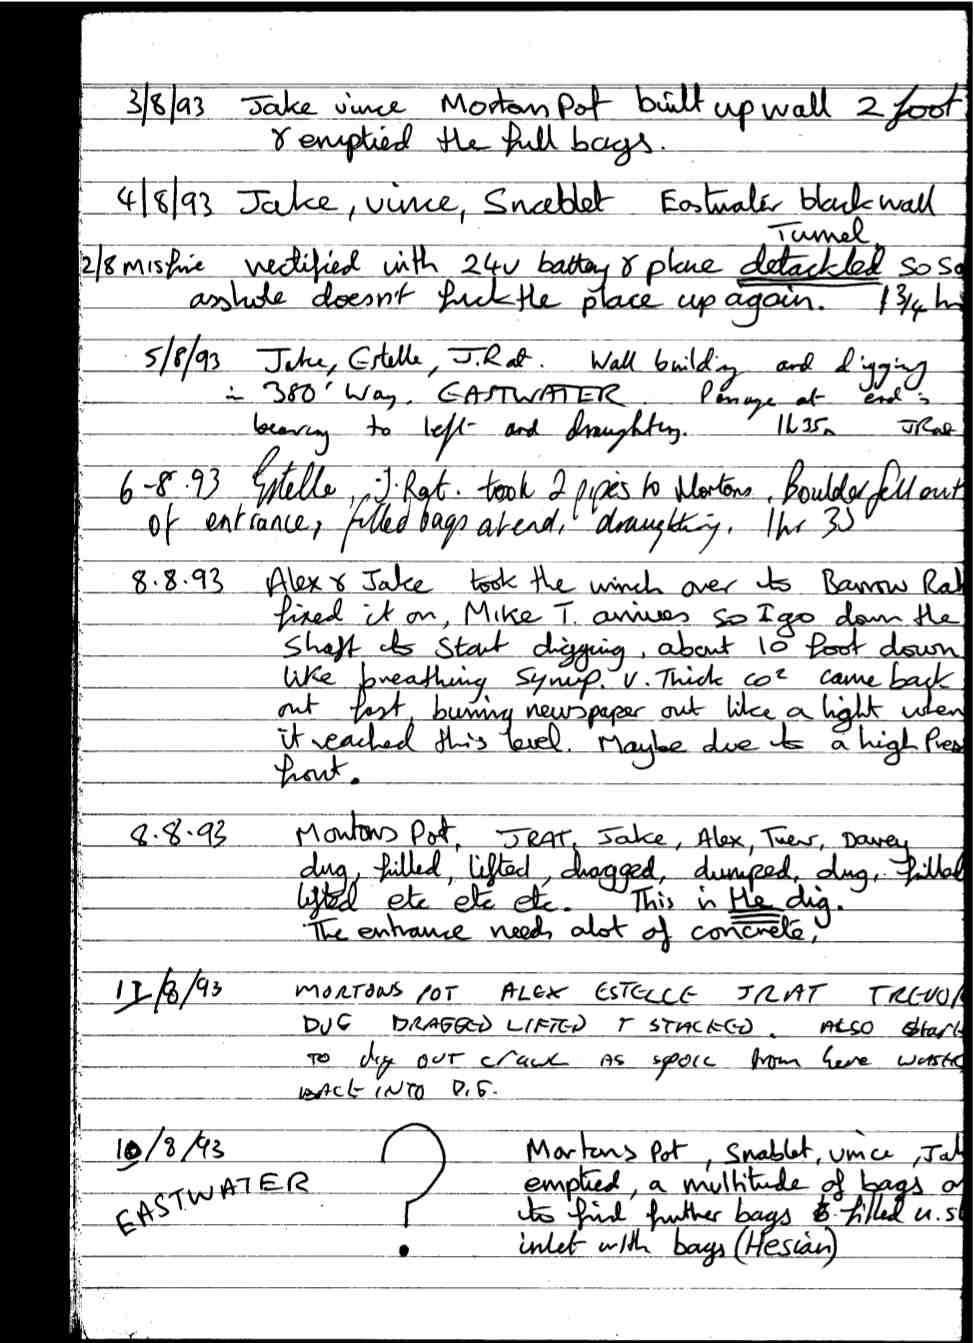 3/8/93 Jake vince Mortons Pot built up wall 2 foot
& emptied the full bags.
4/8/93 Jake, vince, Snablet Eastwater black wall
Tunnel
2/8 misfire rectified with 24v battery & place detackled so
asshole doesn't fuck the place up again. 1 3/4 h
5/8/93 Jake, Estelle, J.Rat. Wall building and digging
in 380' Way. EASTWATER. Passage at end is
bearing to left and draughting. 1h35m JRat
6-8.93 Estelle, J.Rat. took 2 pipes to Mortons, Boulder fell out
of entrance, filled bags at end, draughting. 1hr 35
8.8.93 Alex & Jake took the winch over to Barrow Ra
fixed it on, Mike T. arrives so I go down the
shaft to start digging, about 10 foot down
like breathing syrup. V. Thick co2 came back
out fast, burning newspaper out like a light when
it reached this level. Maybe due to a high Pres
front.
8.8.93 Mortons Pot, JRAT, Jake, Alex, Trev, Davey
dug, filled, lifted, dragged, dumped, dug, filled
lifted etc etc etc. This is the dig.
The entrance needs alot of concrete,
/8/93 MORTONS POT ALEX ESTELLE JRAT TREVO
DUG DRAGGED LIFTED + STACKED. ALSO start
TO dig OUT crawl AS SPOIL from here
BACK INTO DIG.
10/8/93 ? Mortons Pot, Snablet, vince, Ja
EASTWATER emptied, a multitude of bags
to find further bags & filled u.s
inlet with bags (Hesian)